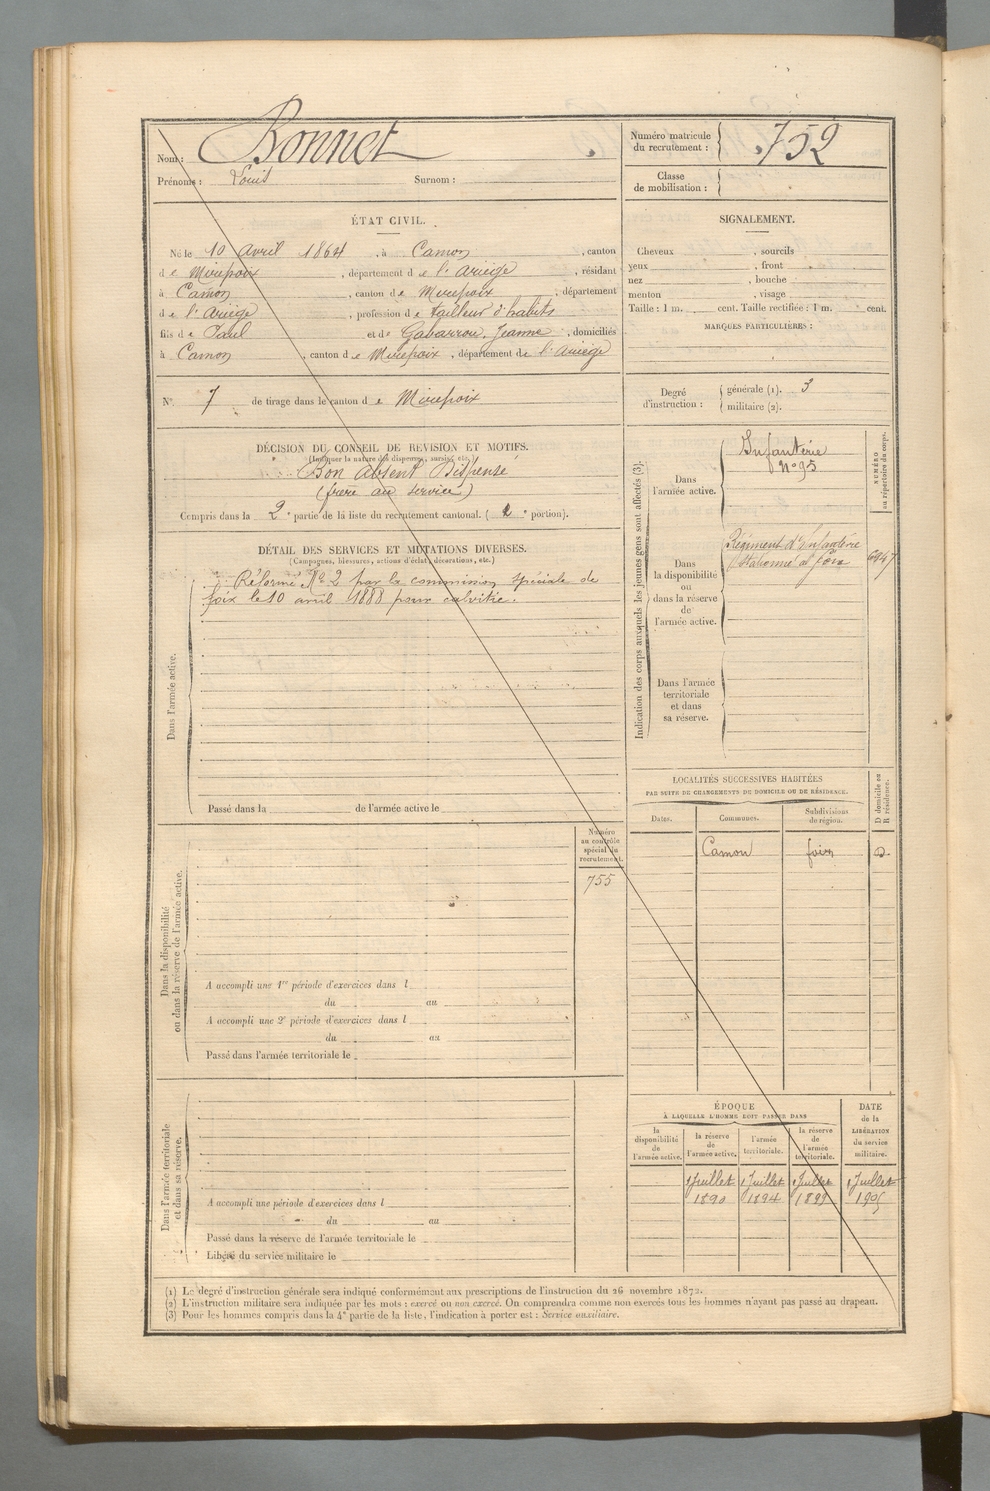 Nom : Bonnet
Prénoms : Louis Surnom :
Numéro matricule du recrutement : 752
Classe de mobilisation :
ÉTAT CIVIL.
Né le 10 avril 1864, à Camon, canton
de Mirepoix, département de l'Ariège, résidant
à Camon, canton de Mirepoix, département
de l'Ariège, profession de tailleur d'habits
fils de Paul et de Gabarrou, Jeanne, domiciliés
à Camon, canton de Mirepoix, département de l'Ariège
SIGNALEMENT.
Cheveux , sourcils
yeux , front
nez , bouche
menton , visage
Taille : 1 m. cent. Taille rectifiée : 1 m. cent.
MARQUES PARTICULIÈRES :
N° 7 de tirage dans le canton de Mirepoix
Degré d'instruction : générale (1). 3
militaire (2).
DÉCISION DU CONSEIL DE REVISION ET MOTIFS.
(Indiquer la nature des dispenses, sursis, etc.)
Bon absent Dispensé
(frère au service)
Compris dans la 2e partie de la liste du recrutement cantonal. ( portion).
DÉTAIL DES SERVICES ET MUTATIONS DIVERSES.
(Campagnes, blessures, actions d'éclat, décorations, etc.)
Réformé N° 2 par la commission spéciale de
foix le 10 avril 1888 pour calvitie.
Dans l'armée active.
Passé dans la de l'armée active le
Indication des corps auxquels les jeunes gens sont affectés (3).
NUMÉRO au répertoire du corps.
Dans l'armée active.
Infanterie
N° 95
Dans la disponibilité ou dans la réserve de l'armée active.
Régiment d'Infanterie
Stationné à foix
6947
Dans l'armée territoriale et dans sa réserve.
LOCALITÉS SUCCESSIVES HABITÉES
PAR SUITE DE CHANGEMENTS DU DOMICILE OU DE RÉSIDENCE.
D domicile ou R résidence.
Dates. Communes. Subdivisions de région.
Camon foix D
Numéro au contrôle spécial du recrutement.
755
Dans la disponibilité ou dans la réserve de l'armée active.
A accompli une 1re période d'exercices dans l
du au
A accompli une 2e période d'exercices dans l
du au
Passé dans l'armée territoriale le
Dans l'armée territoriale et dans sa réserve.
A accompli une période d'exercices dans l
du au
Passé dans la réserve de l'armée territoriale le
Libéré du service militaire le
ÉPOQUE
À LAQUELLE L'HOMME DOIT PASSER DANS
la disponibilité de l'armée active.
la réserve de l'armée active.
l'armée territoriale.
la réserve de l'armée territoriale.
DATE de la LIBÉRATION du service militaire.
1 Juillet 1 Juillet 1 Juillet 1 Juillet
1890 1894 1899 1905
(1) Le degré d'instruction générale sera indiqué conformément aux prescriptions de l'instruction du 26 novembre 1872.
(2) L'instruction militaire sera indiquée par les mots : exercé ou non exercé. On comprendra comme non exercés tous les hommes n'ayant pas passé au drapeau.
(3) Pour les hommes compris dans la 4e partie de la liste, l'indication à porter est : Service auxiliaire.